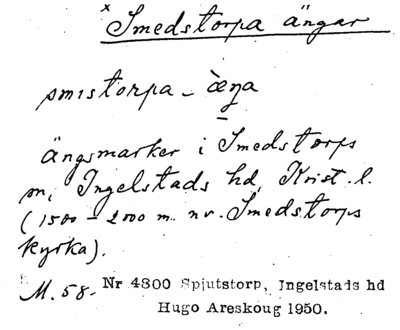 x Smedstorpa ängar
smistorpa - æŋa
ängsmarker i Smedstorps
sn, Ingelstads hd, Krist. l.
(1500 - 2000 m. nv. Smedstorps
kyrka).
M. 58. Nr 4800 Spjutstorp, Jngelstads hd
Hugo Areskoug 1950.